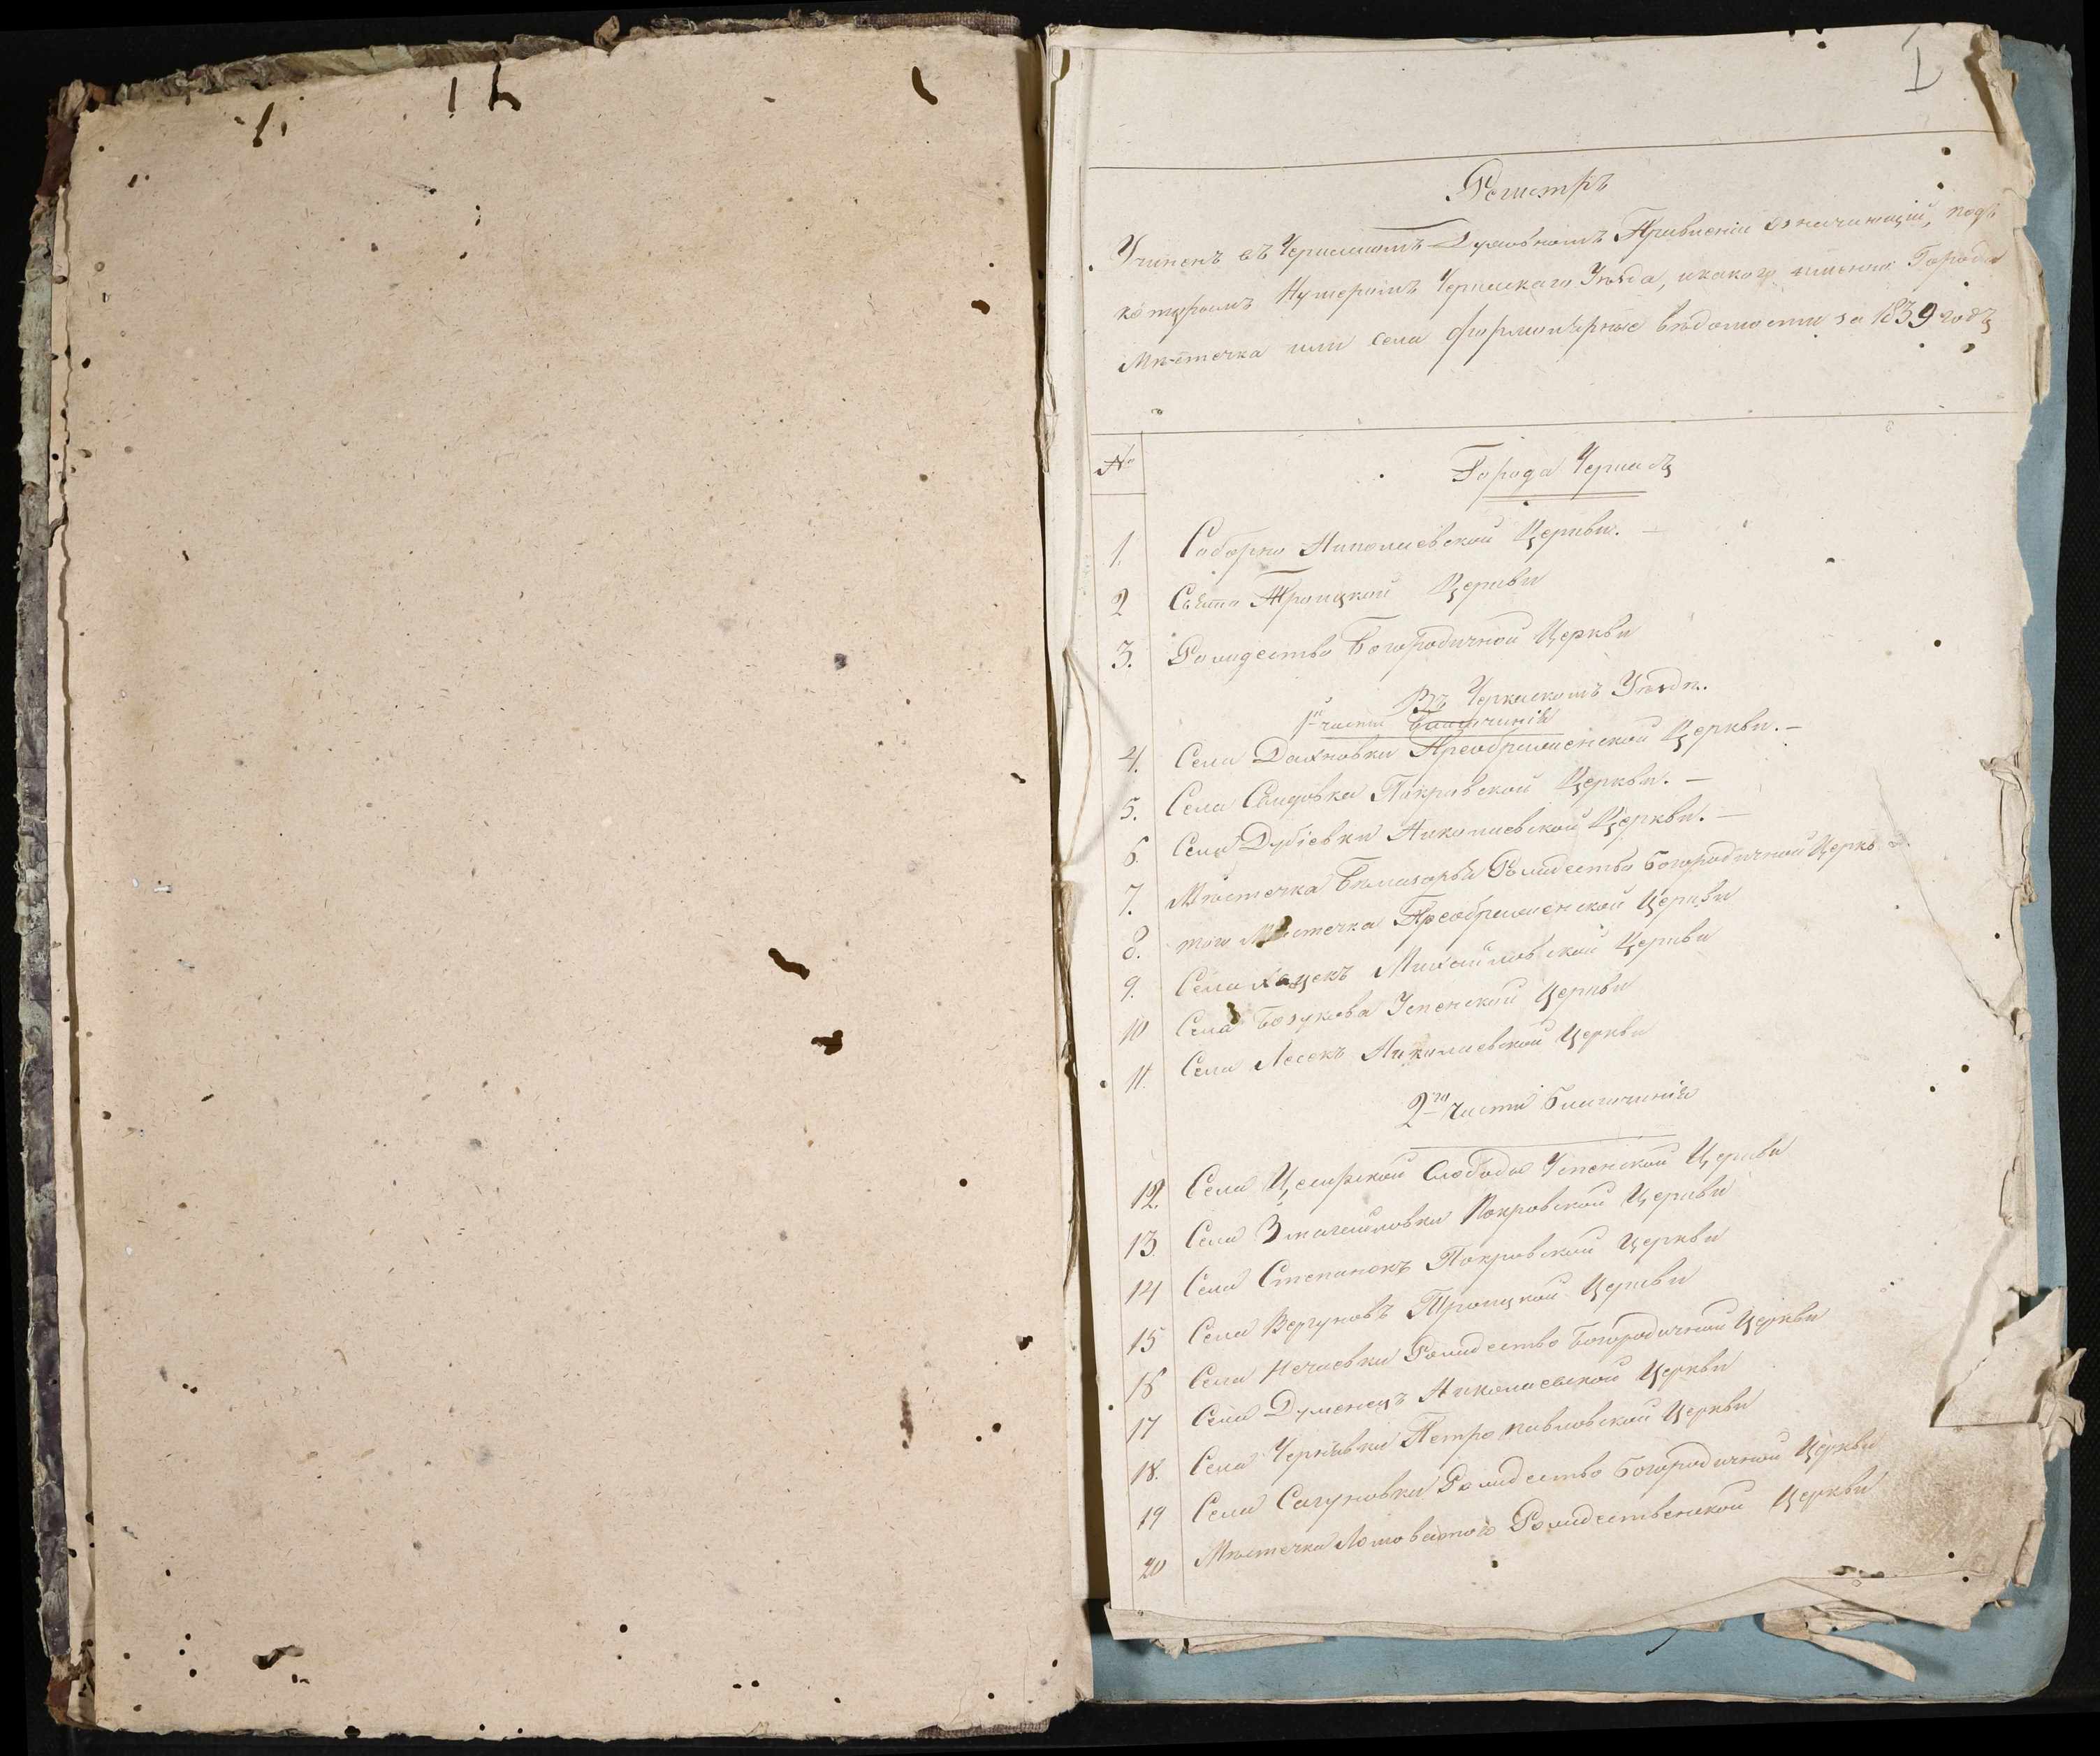 1
Регистръ
Учиненъ въ Черкаскомъ Духовномъ Правленіи означающій, подъ
которымъ Нумеромъ Черкаскаго Уѣзда, и какого именно Города
Мѣстечка или села формулярные вѣдомости за 1839 годъ
№
Города Черкасъ
1. Соборно Николаевской Церкви. —
2 Свято Троицкой Церкви
3. Рождество Богородичной Церкви
Въ Черкаскомъ Уѣздѣ.
1й части Благочинія
4. Села Дахновки Преображенской Церкви. —
5. Села Свидовка Покровской Церкви. —
6. Села Дубіевки Николаевской Церкви. —
7. Мѣстечка Бѣлозорья Рождество Богородичной Церкви
8. того Мѣстечка Преображенской Церкви
9. Села Хацекъ Михайловской Церкви
10 Села Бузукова Успенской Церкви
11. Села Лесекъ Николаевской Церкви
2го части Благочинія
12. Села Цесарской Слободы Успенской Церкви
13. Села Змагайловки Покровской Церкви
14 Села Степанокъ Покровской Церкви
15 Села Вергуновъ Троицкой Церкви
16 Села Нечаевки Рождество Богородичной Церкви
17 Села Думенецъ Николаевской Церкви
18. Села Чернявки Петропавловской Церкви
19 Села Сагуновки Рождество Богородичной Церкви
20 Мѣстечка Ломоватого Рождественской Церкви